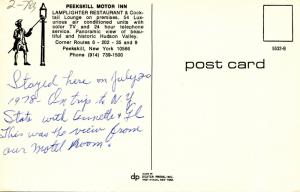 2-763
PEEKSKILL MOTOR INN
LAMPLIGHTER RESTAURANT & Cock-
tail Lounge on premises. 54 Lux-
urious air conditioned units with
color TV and 24 hour telephone
service. Panoramic view of beau-
tiful and historic Hudson Valley.
Corner Routes 6 - 202 - 35 and 9
Peekskill, New York 10566
Phone (914) 739-1500
5532-B
post card
Stayed here on July 20
1978 - On trip to N.Y.
State with Annette & Fl
This was the view from
our Motel Room.
dp
DEXTER PRESS, INC.
WEST NYACK, NEW YORK